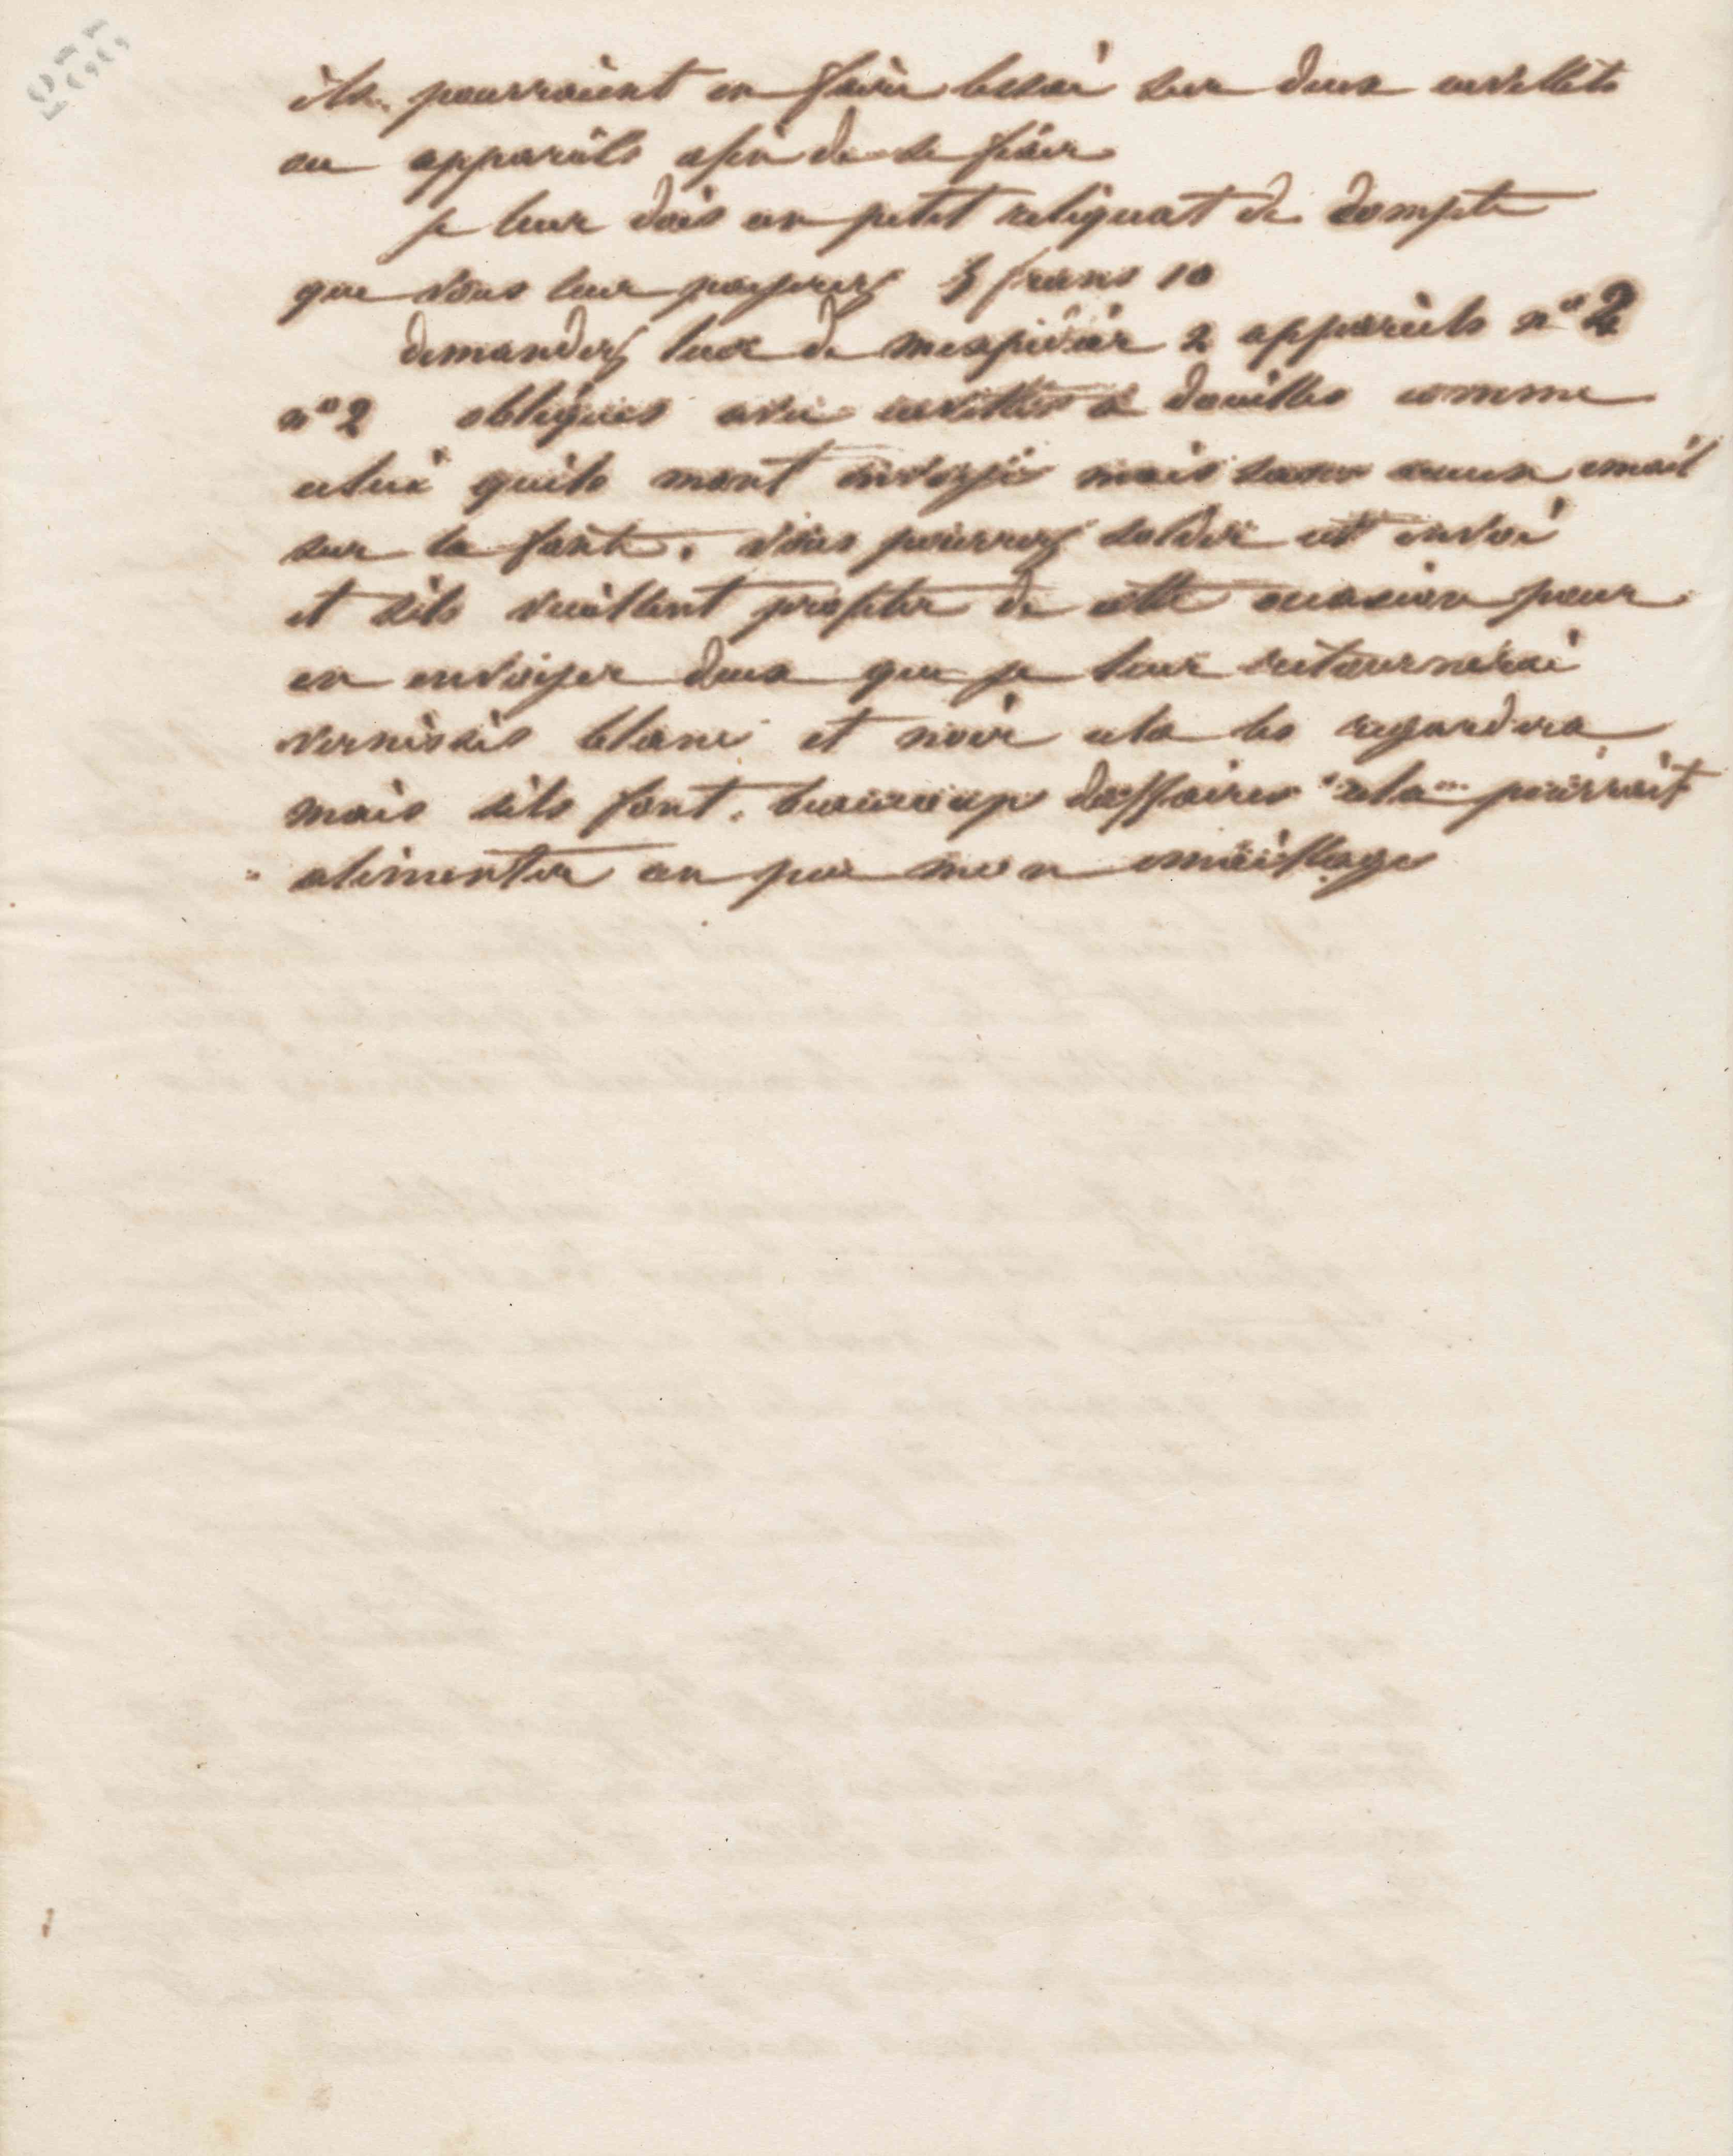 255
ils pourraient en faire lessai sur deux cuvettes
ou appareils afin de se fixer
je leur dois un petit reliquat de compte
que vous leur payerez 3 francs 10
demandez leur de mexpedier 2 appareils n° 2
n° 2 obliques avec cuvettes à douilles comme
celui quils mont envoyé mais sans aucun email
sur la fonte. vous pourrez solder cet envoi
et sils veuillent profiter de cette occasion pour
en envoyer deux que je leur retournerai
vernissés blanc et noir cela les regardera
mais sils font beaucoup daffaires cela pourrait
alimenter un peu mon émaillage